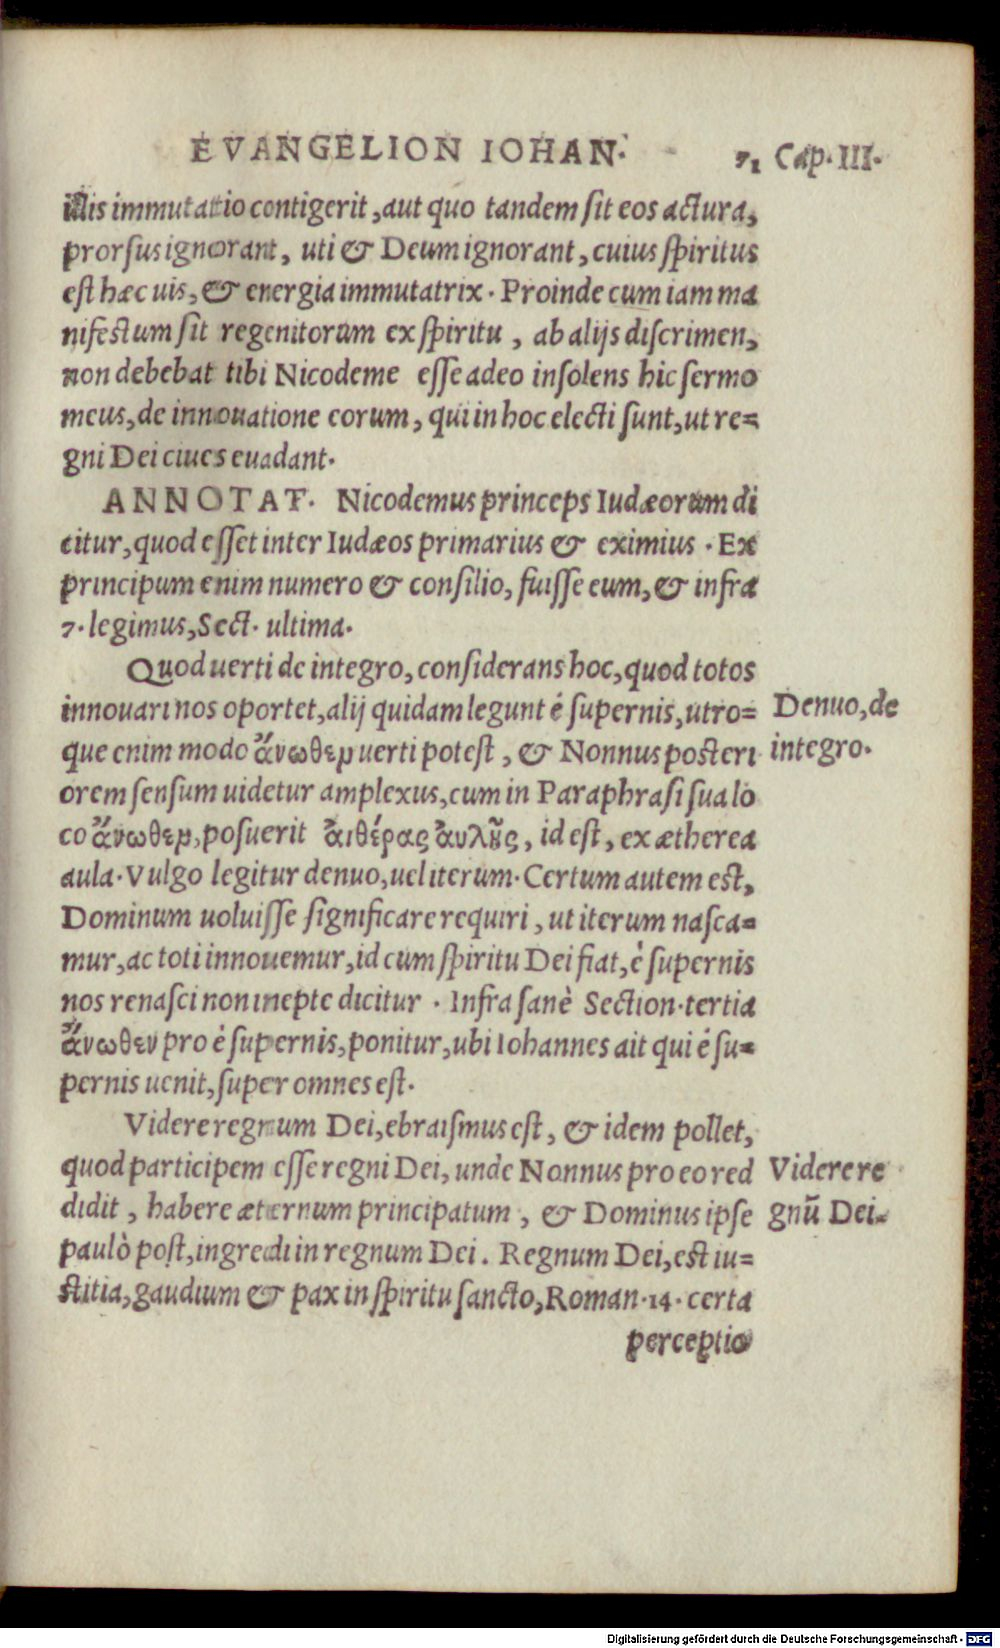 EVANGELION IOHAN.
71 Cap. III.
illis immutatio contigerit, aut quo tandem sit eos actura,
prorsus ignorant, uti & Deum ignorant, cuius spiritus
est hæc uis, & energia immutatrix. Proinde cum iam ma
nifestum sit regenitorum ex spiritu, ab alijs discrimen,
non debebat tibi Nicodeme esse adeo insolens hic sermo
meus, de innouatione eorum, qui in hoc electi sunt, ut re=
gni Dei ciues euadant.
ANNOTAT. Nicodemus princeps Iudæorum di
citur, quod esset inter Iudæos primarius & eximius. Ex
principum enim numero & consilio, fuisse eum, & infra
7. legimus, Sect. ultima.
Quod uerti de integro, considerans hoc, quod totos
innouari nos oportet, alij quidam legunt é supernis, utro=
que enim modo ἄνωθεν uerti potest, & Nonnus posteri
orem sensum uidetur amplexus, cum in Paraphrasi sua lo
co ἄνωθεν, posuerit ἀιθέρας ἀυλῆς, id est, ex ætherea
aula. Vulgo legitur denuo, uel iterum. Certum autem est,
Dominum uoluisse significare requiri, ut iterum nasca=
mur, ac toti innouemur, id cum spiritu Dei fiat, è supernis
nos renasci non inepte dicitur. Infra sanè Section. tertia
ἄνωθεν pro é supernis, ponitur, ubi Iohannes ait qui é su=
pernis uenit, super omnes est.
Videre regnum Dei, ebraismus est, & idem pollet,
quod participem esse regni Dei, unde Nonnus pro eo red
didit, habere æternum principatum, & Dominus ipse
paulò post, ingredi in regnum Dei. Regnum Dei, est iu=
stitia, gaudium & pax in spiritu sancto, Roman. 14. certa
perceptio
Denuo, de
integro.
Videre re
gnũ Dei.
Digitalisierung gefördert durch die Deutsche Forschungsgemeinschaft - DFG